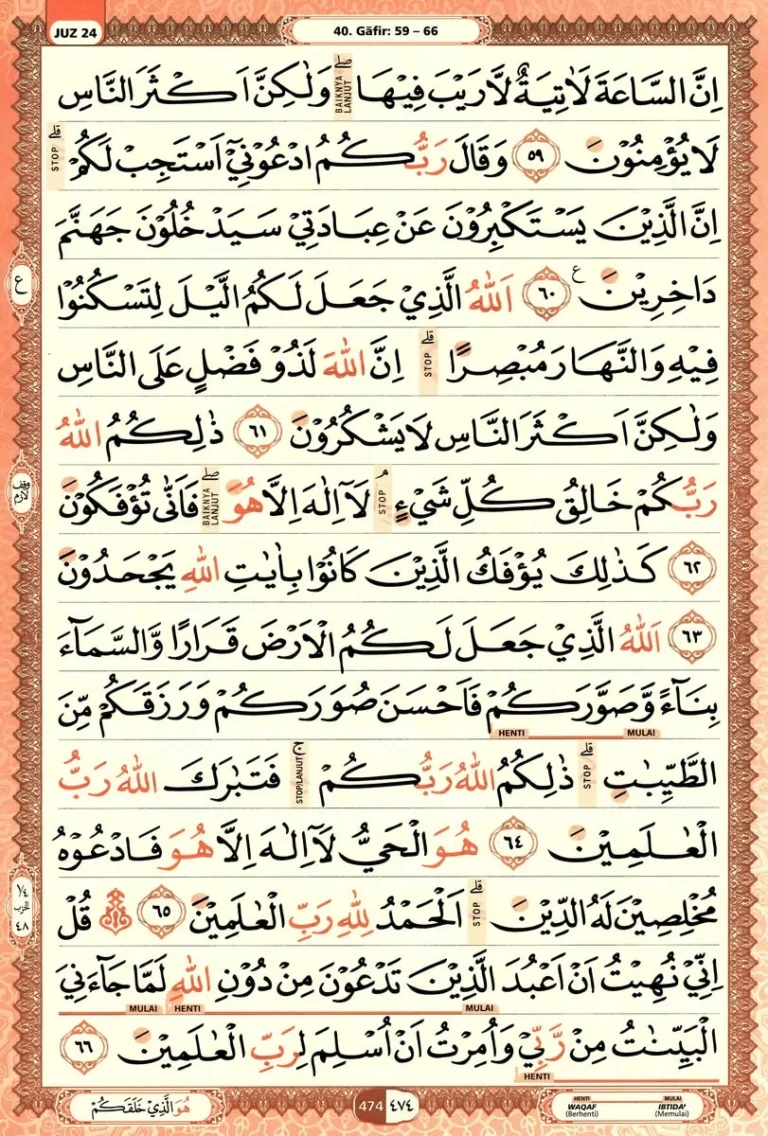 JUZ 24
40. Gāfir: 59 – 66
اِنَّ السَّاعَةَ لَاٰتِيَةٌ لَّا رَيْبَ فِيْهَا ۖ BAIKNYA LANJUT وَلٰكِنَّ اَكْثَرَ النَّاسِ
لَا يُؤْمِنُوْنَ ٥٩ وَقَالَ رَبُّكُمُ ادْعُوْنِيْٓ اَسْتَجِبْ لَكُمْ ۗ STOP
اِنَّ الَّذِيْنَ يَسْتَكْبِرُوْنَ عَنْ عِبَادَتِيْ سَيَدْخُلُوْنَ جَهَنَّمَ
ع
دَاخِرِيْنَ ࣖ ٦٠ اَللّٰهُ الَّذِيْ جَعَلَ لَكُمُ الَّيْلَ لِتَسْكُنُوْا
فِيْهِ وَالنَّهَارَ مُبْصِرًا ۗ STOP اِنَّ اللّٰهَ لَذُوْ فَضْلٍ عَلَى النَّاسِ
وَلٰكِنَّ اَكْثَرَ النَّاسِ لَا يَشْكُرُوْنَ ٦١ ذٰلِكُمُ اللّٰهُ
وقف لازم
رَبُّكُمْ خَالِقُ كُلِّ شَيْءٍ ۘ STOP لَآ اِلٰهَ اِلَّا هُوَ ۖ BAIKNYA LANJUT فَاَنّٰى تُؤْفَكُوْنَ
٦٢ كَذٰلِكَ يُؤْفَكُ الَّذِيْنَ كَانُوْا بِاٰيٰتِ اللّٰهِ يَجْحَدُوْنَ
٦٣ اَللّٰهُ الَّذِيْ جَعَلَ لَكُمُ الْاَرْضَ قَرَارًا وَّالسَّمَاۤءَ
بِنَاۤءً وَّصَوَّرَكُمْ فَاَحْسَنَ صُوَرَكُمْ وَرَزَقَكُمْ مِّنَ
HENTI MULAI
الطَّيِّبٰتِ ۗ STOP ذٰلِكُمُ اللّٰهُ رَبُّكُمْ ۚ STOP/LANJUT فَتَبٰرَكَ اللّٰهُ رَبُّ
الْعٰلَمِيْنَ ٦٤ هُوَ الْحَيُّ لَآ اِلٰهَ اِلَّا هُوَ فَادْعُوْهُ
¼ الحزب ٤٨
مُخْلِصِيْنَ لَهُ الدِّيْنَ ۗ STOP اَلْحَمْدُ لِلّٰهِ رَبِّ الْعٰلَمِيْنَ ٦٥ ۞ قُلْ
اِنِّيْ نُهِيْتُ اَنْ اَعْبُدَ الَّذِيْنَ تَدْعُوْنَ مِنْ دُوْنِ اللّٰهِ لَمَّا جَاۤءَنِيَ
MULAI HENTI MULAI
الْبَيِّنٰتُ مِنْ رَّبِّيْ وَاُمِرْتُ اَنْ اُسْلِمَ لِرَبِّ الْعٰلَمِيْنَ ٦٦
HENTI
هُوَ الَّذِيْ خَلَقَكُمْ
474 ٤٧٤
HENTI MULAI
WAQAF IBTIDA'
(Berhenti) (Memulai)